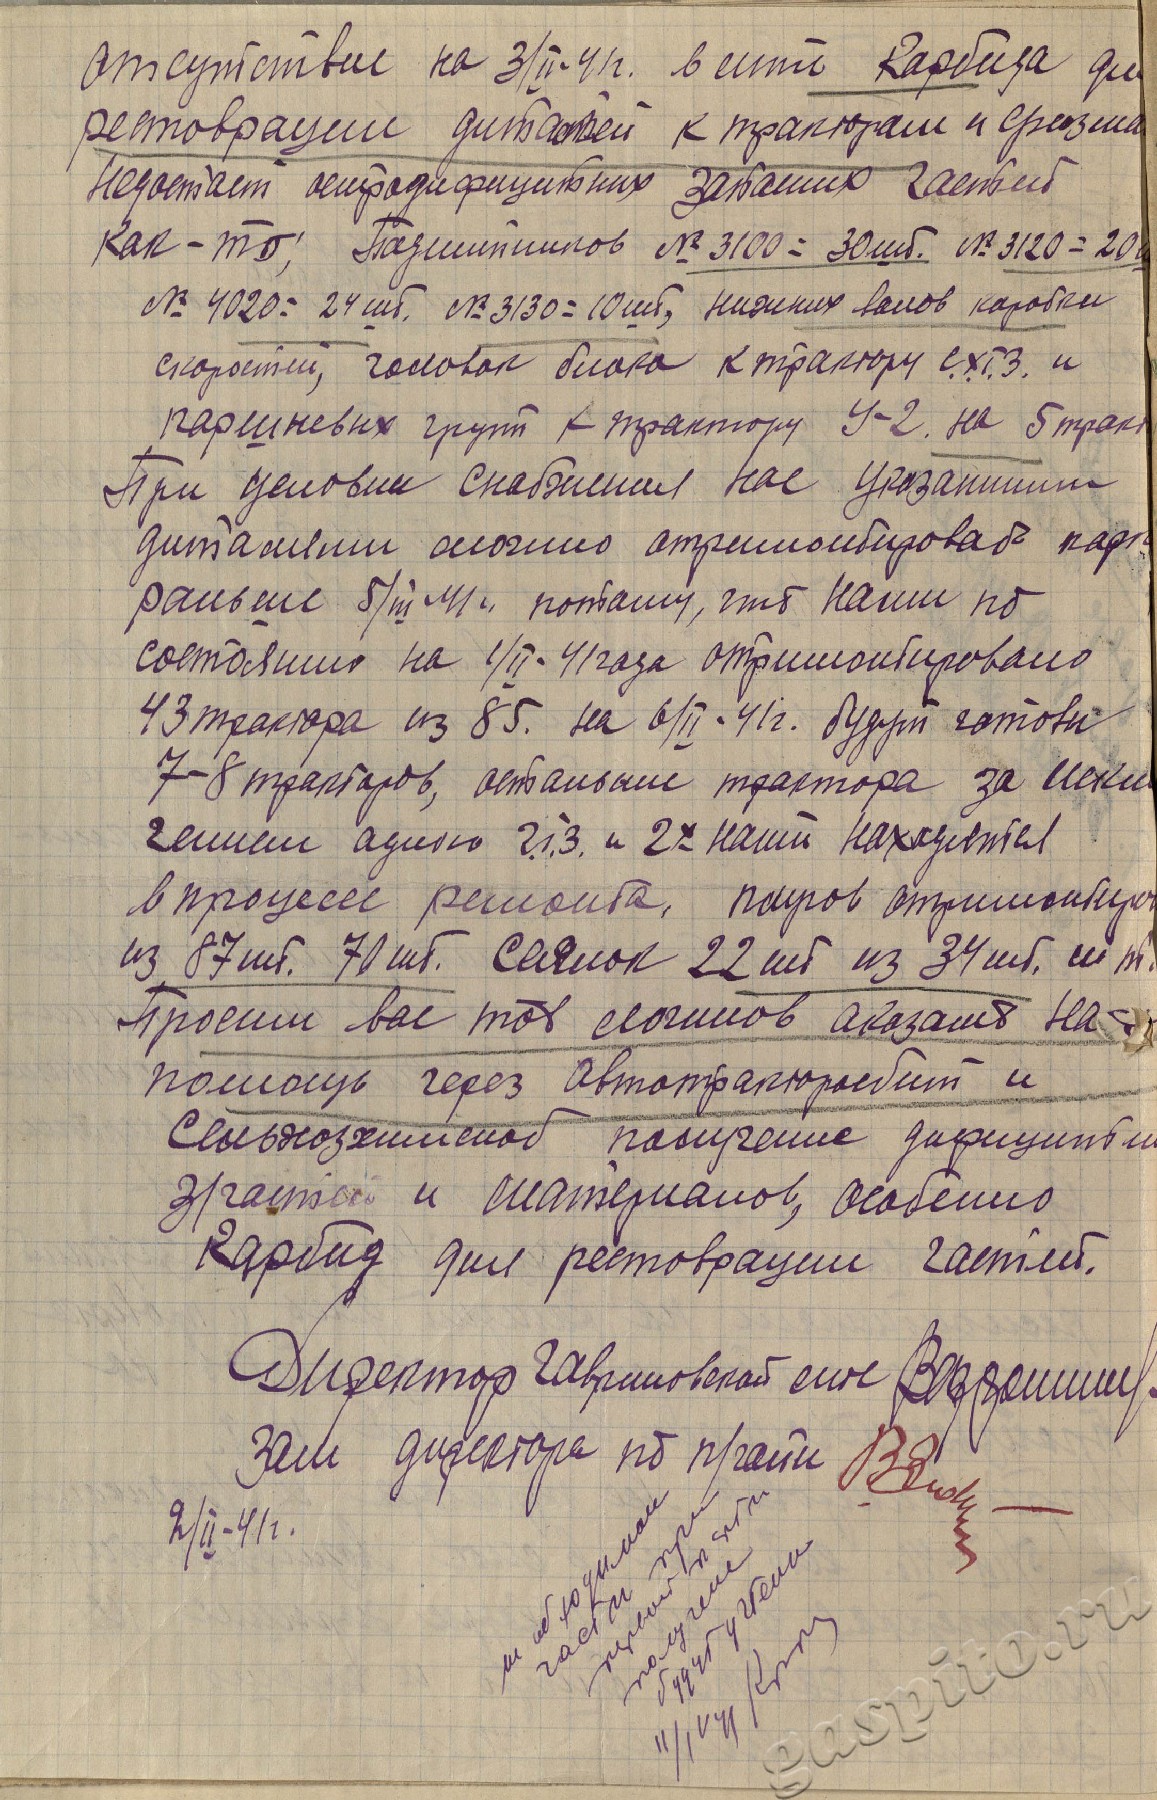 отсутствие на 3/II-41г. в мтм Карбида для
рестоврации диталей к тракторам и
Недостает остродифицитних запасних частей
Как-то; Подшипников № 3100 = 30 шт. № 3120 = 20
№ 4020 = 24 шт. № 3130 = 10 шт, нижних валов каробки
скоростей, головок блока к трактору с.х.т.з. и
паршневых групп к трактору У-2. на 5 тракт
При условии снабжения нас указанными
диталями можно отремонтировать парк
раньше 5/III-41г. потому, что нами по
состоянию на 1/II-41 года отримонтировано
43 трактора из 85. на 6/II-41г. будут готови
7-8 тракторов, остальные трактора за искл
чением одного и 2х нати находятся
в процессе ремонта, плугов отримонтиров
из 87 шт. 70 шт. Сеялок 22 шт из 34 шт. и т.
Просим вас тов Логинов аказать на-
помощь через Автотрактросбит и
Сельхозхимснаб получение дифицитн
з/частей и материалов, особенно
Карбид для рестоврации частей.
Директор Гавриловской мтс
Зам директора по п/части
2/II-41г.
необходимые
части при
первом
получение
будут учтени
11/IV 41
gaspito.ru